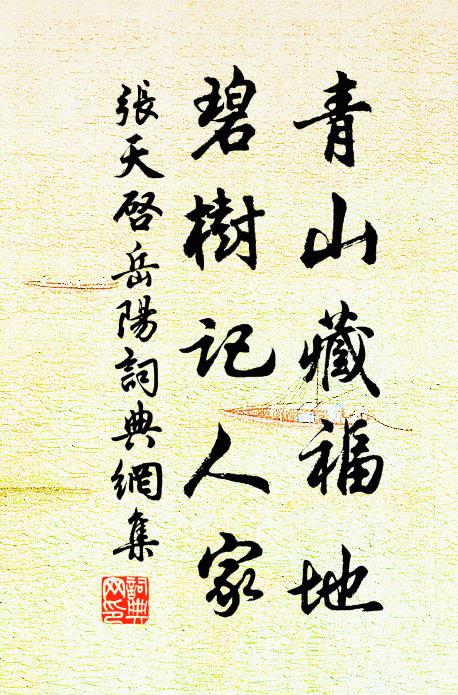 青山藏福地
碧樹記人家
張天啓岳陽詞典網集
詞典網印